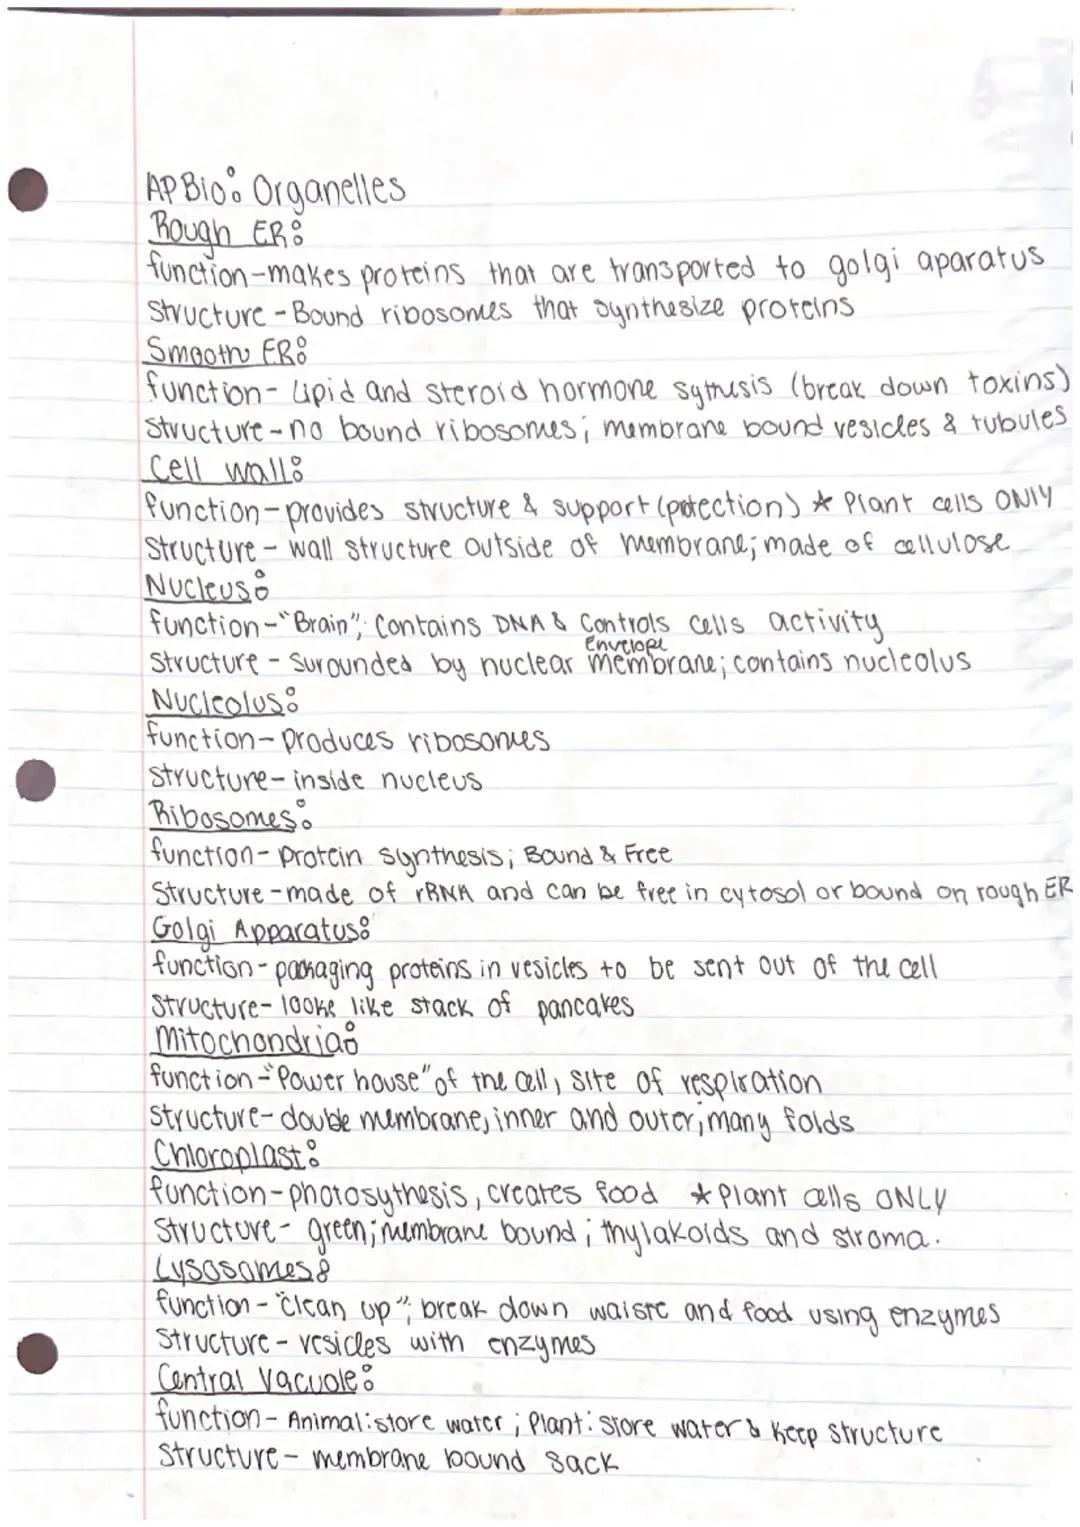 AP Bio: Organelles
Rough ER:
function-makes proteins that are transported to golgi aparatus
Structure-Bound ribosomes that synthesize proteins
Smooth ER:
function- Lipid and steroid hormone sytnusis (break down toxins)
Structure-no bound ribosomes; membrane bound vesicles & tubules
Cell wall:
function-provides structure & support (protection) * Plant cells ONLY
Structure- wall structure outside of membrane; made of cellulose
Nucleus:
function-"Brain"; Contains DNA & Controls cells activity
Envelope
Structure - Surounded by nuclear membrane; contains nucleolus
Nucleolus:
function- produces ribosomes
structure- inside nucleus
Ribosomes:
function- protein synthesis; Bound & Free
Structure-made of rRNA and can be free in cytosol or bound on rough ER
Golgi Apparatus:
function- packaging proteins in vesicles to be sent out of the cell
Structure- looks like stack of pancakes
Mitochondria:
function-"Power house" of the cell, site of respiration
structure- double membrane, inner and outer; many folds
Chloroplast:
function-photosythesis, creates food * Plant cells ONLY
Structure- green; membrane bound; thylakoids and stroma.
Lysosomes:
function- "clean up"; break down waiste and food using enzymes
Structure- vesicles with enzymes
Central Vacuole:
function- Animal: store water; Plant: store water & keep structure
Structure- membrane bound sack